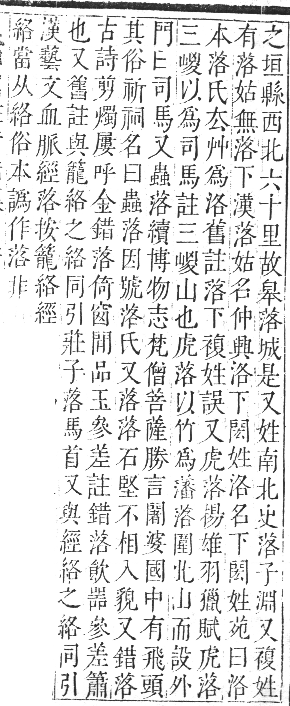 之垣縣西北六十里故皋落城是又姓南北史落子淵又複姓
有落姑無落下漢落姑名仲興洛下閎姓洛名下閎姓苑曰洛
本落氏去艸爲洛舊註落下複姓誤又虎落揚雄羽獵賦虎落
三嵕以爲司馬註三嵕山也虎落以竹爲藩落圍此山而設外
門曰司馬又蟲落續博物志梵僧菩薩勝言闍婆國中有飛頭
其俗祈祠名曰蟲落因號落氏又落落石堅不相入貌又錯落
古詩剪燭屢呼金錯落倚窗閒品玉參差註錯落飲噐參差簫
也又舊註與籠絡之絡同引莊子落馬首又與經絡之絡同引
漢藝文血脈經落按籠絡經
絡當从絡俗本譌作落非